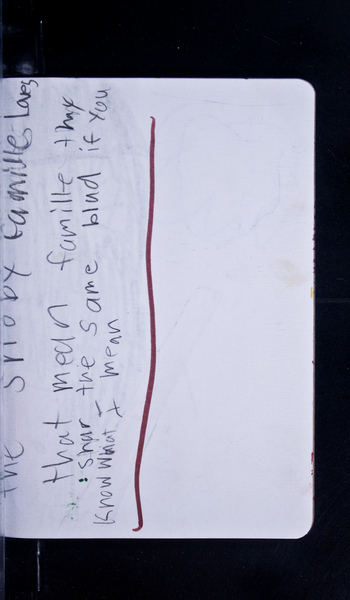 the snoby famille Loves
that mean famille thay
shar the same blud if you
know what I mean